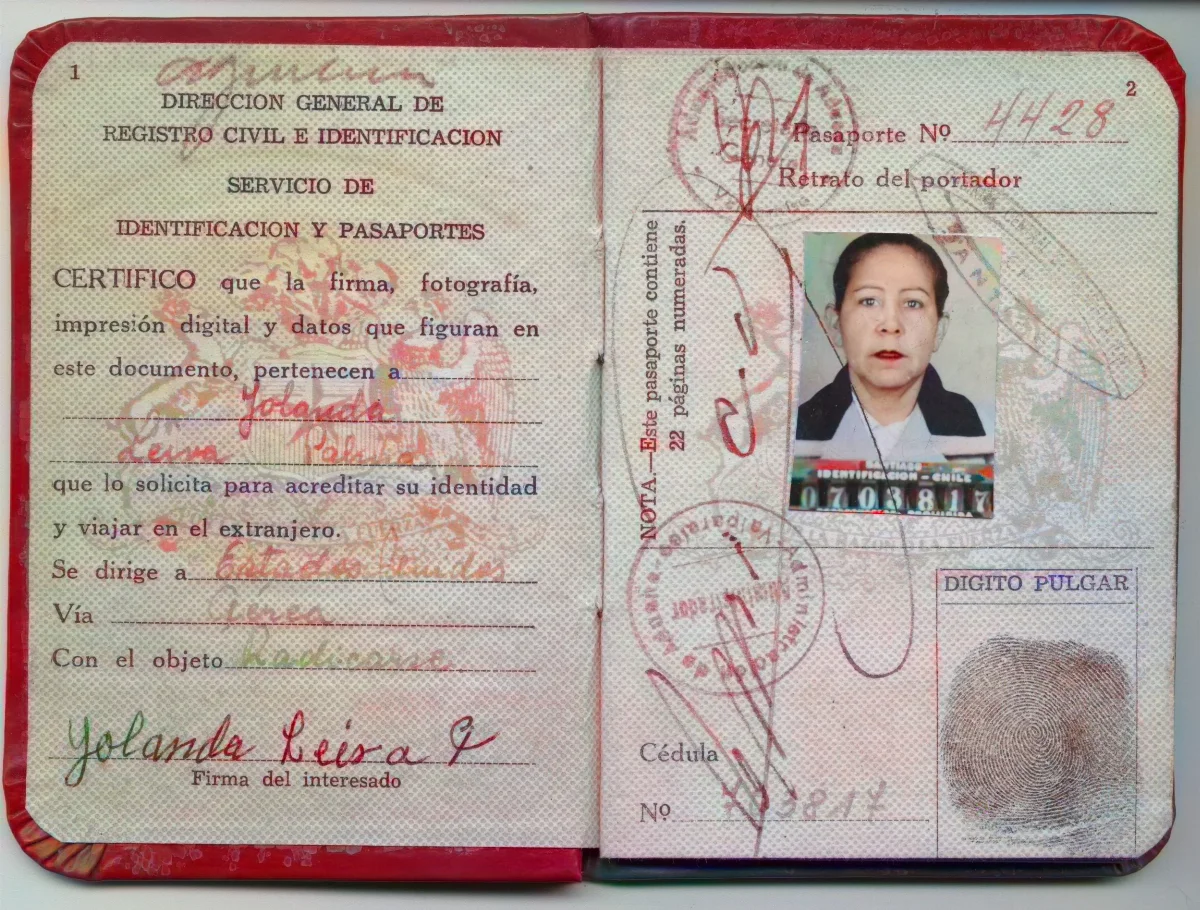 1
DIRECCION GENERAL DE
REGISTRO CIVIL E IDENTIFICACION
SERVICIO DE
IDENTIFICACION Y PASAPORTES
CERTIFICO que la firma, fotografía,
impresión digital y datos que figuran en
este documento, pertenecen a
Yolanda
Leiva
que lo solicita para acreditar su identidad
y viajar en el extranjero.
Se dirige a Estados Unidos
Vía Aérea
Con el objeto Radicarse
Yolanda Leiva P
Firma del interesado
2
Pasaporte Nº 4428
Retrato del portador
NOTA.—Este pasaporte contiene
22 páginas numeradas.
IDENTIFICACION - CHILE
0703817
Administracion de Aduana - Valparaiso
Administrador
DIGITO PULGAR
Cédula
Nº 703817